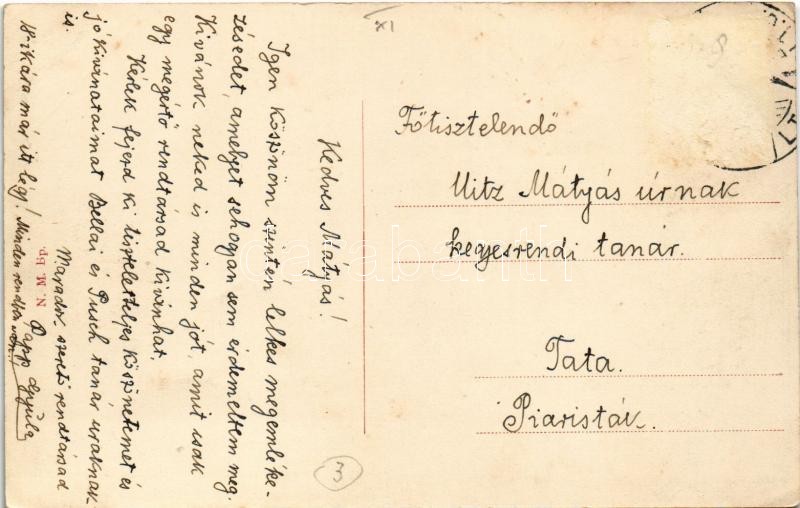 Kedves Mátyás!
Igen köszönöm szintén lelkes megemléke-
zésedet, amelyet sehogyan sem érdemeltem meg.
Kívánok neked is minden jót, amit csak
egy megértő rendtársad kívánhat.
Kérlek fejezd ki tiszteletteljes köszönetemet és
jókívánataimat Bellai és Pusch tanár uraknak
is.
Maradok szerető rendtársad
Papp Gyula
18-ikára már itt légy! Minden rendben van!
N. M. Bp.
Főtisztelendő
Uitz Mátyás úrnak
kegyesrendi tanár.
Tata.
Piaristák.
XI
3
darabanth